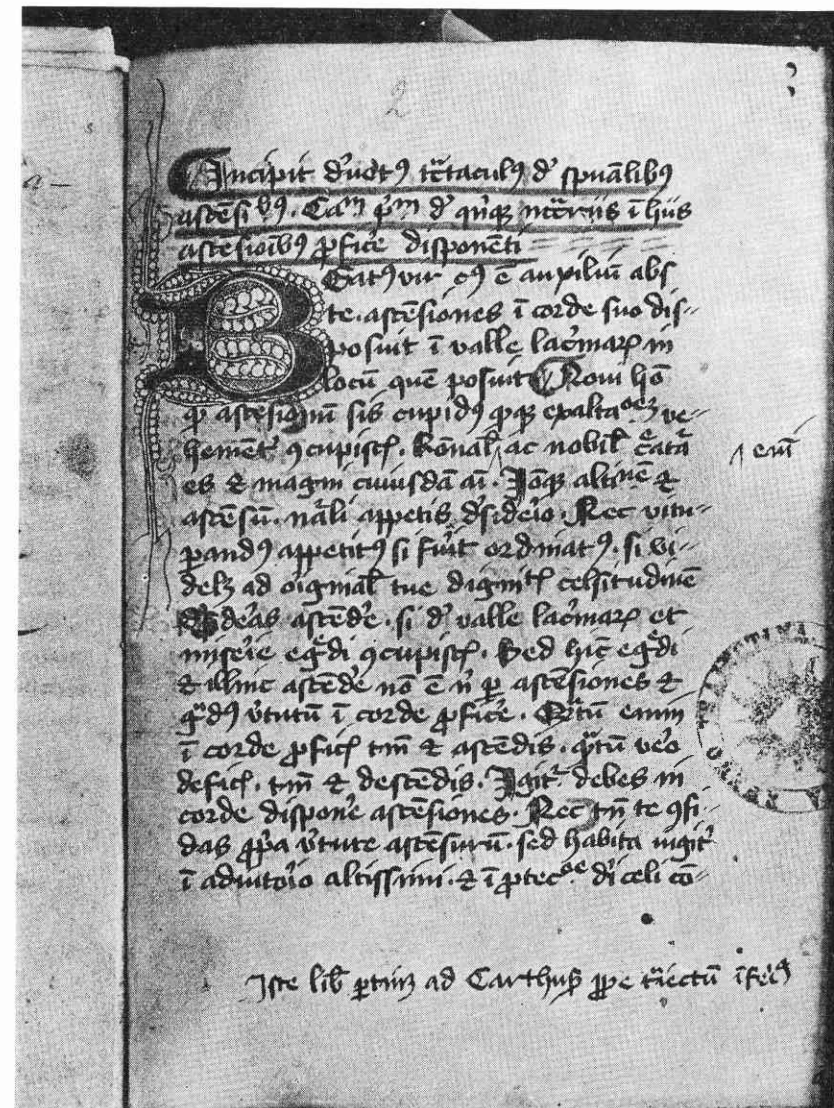 2
Incipit deuotꝰ tͣctaculꝰ dͤ spūalibꝰ
ascēsibꝰ. Caᵐ pͥᵐ dͤ qͥnqꝫ mͣteriis ī hͥꝰ
ascēsioībꝰ ꝓficͤe disponēti
Beatꝰ vir cꝰ ē auxiliū abs
te. ascēsiones ī corde suo dis-
posuit ī valle lacͥmaꝝ in
locū quē posuit Noui hō
ꝙ ascēsionū sis cupidꝰ qꝫ exaltaᵒᵉꝫ ve-
hemēt ꝯcupiscꝭ. Rōnal ac nobil cͤatͣa
eni
es ⁊ magni cuiusdā ai͞. Ioqꝫ altiᵗⁿᵉ ⁊
ascēsū. nͣali appetis dͤsidͤio. Nec vitu-
ꝑandꝰ appetitꝰ si fuͥit ordinatꝰ. si vi-
delꝫ ad oͥiginal tue dignitꝭ celsitudinē
dͤsidͤas ascēdͤe. si dͤ valle lacͥmaꝝ et
misͤie egͤdi ꝯcupiscꝭ. Sed hīc egͤdi
⁊ illinc ascēdͤe nō ē nͥ ꝑ ascēsiones ⁊
gͣdꝰ vͥtutū ī corde ꝓficͤe. Qͣtū enim
ī corde ꝓficꝭ tm̄ ⁊ ascēdis. qͣtū vͤo
deficꝭ. tm̄ ⁊ descēdis. Igitͬ debes in
corde disponͤe ascēsiones. Nec tn̄ te ꝯfi-
das ꝓpͥa vͥtute ascēsurū. sed habita iugitͬ
ī adiutoͥio altissimi. ⁊ ī ꝓtecᵒᵉ dͥ celi cō-
Iste lib ꝑtinꝫ ad Carthuꝭ ꝓpe tͣiectū īfeͥꝰ